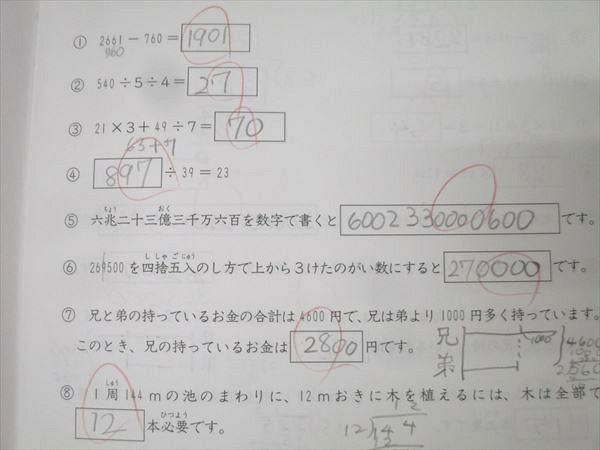 ① 2661 − 760 = 1901
960
② 540 ÷ 5 ÷ 4 = 27
③ 21 × 3 + 49 ÷ 7 = 70
63 + 7
④ 897 ÷ 39 = 23
⑤ 六兆二十三億三千万六百を数字で書くと 6002330000600 です。
⑥ 269500 を四捨五入のし方で上から3けたのがい数にすると 270000 です。
⑦ 兄と弟の持っているお金の合計は 4600 円で、兄は弟より 1000 円多く持っています。
このとき、兄の持っているお金は 2800 円です。
兄
弟
1000
4600
⑧ 1周 144 m の池のまわりに、12 m おきに木を植えるには、木は全部で
12 本必要です。
12
12)144